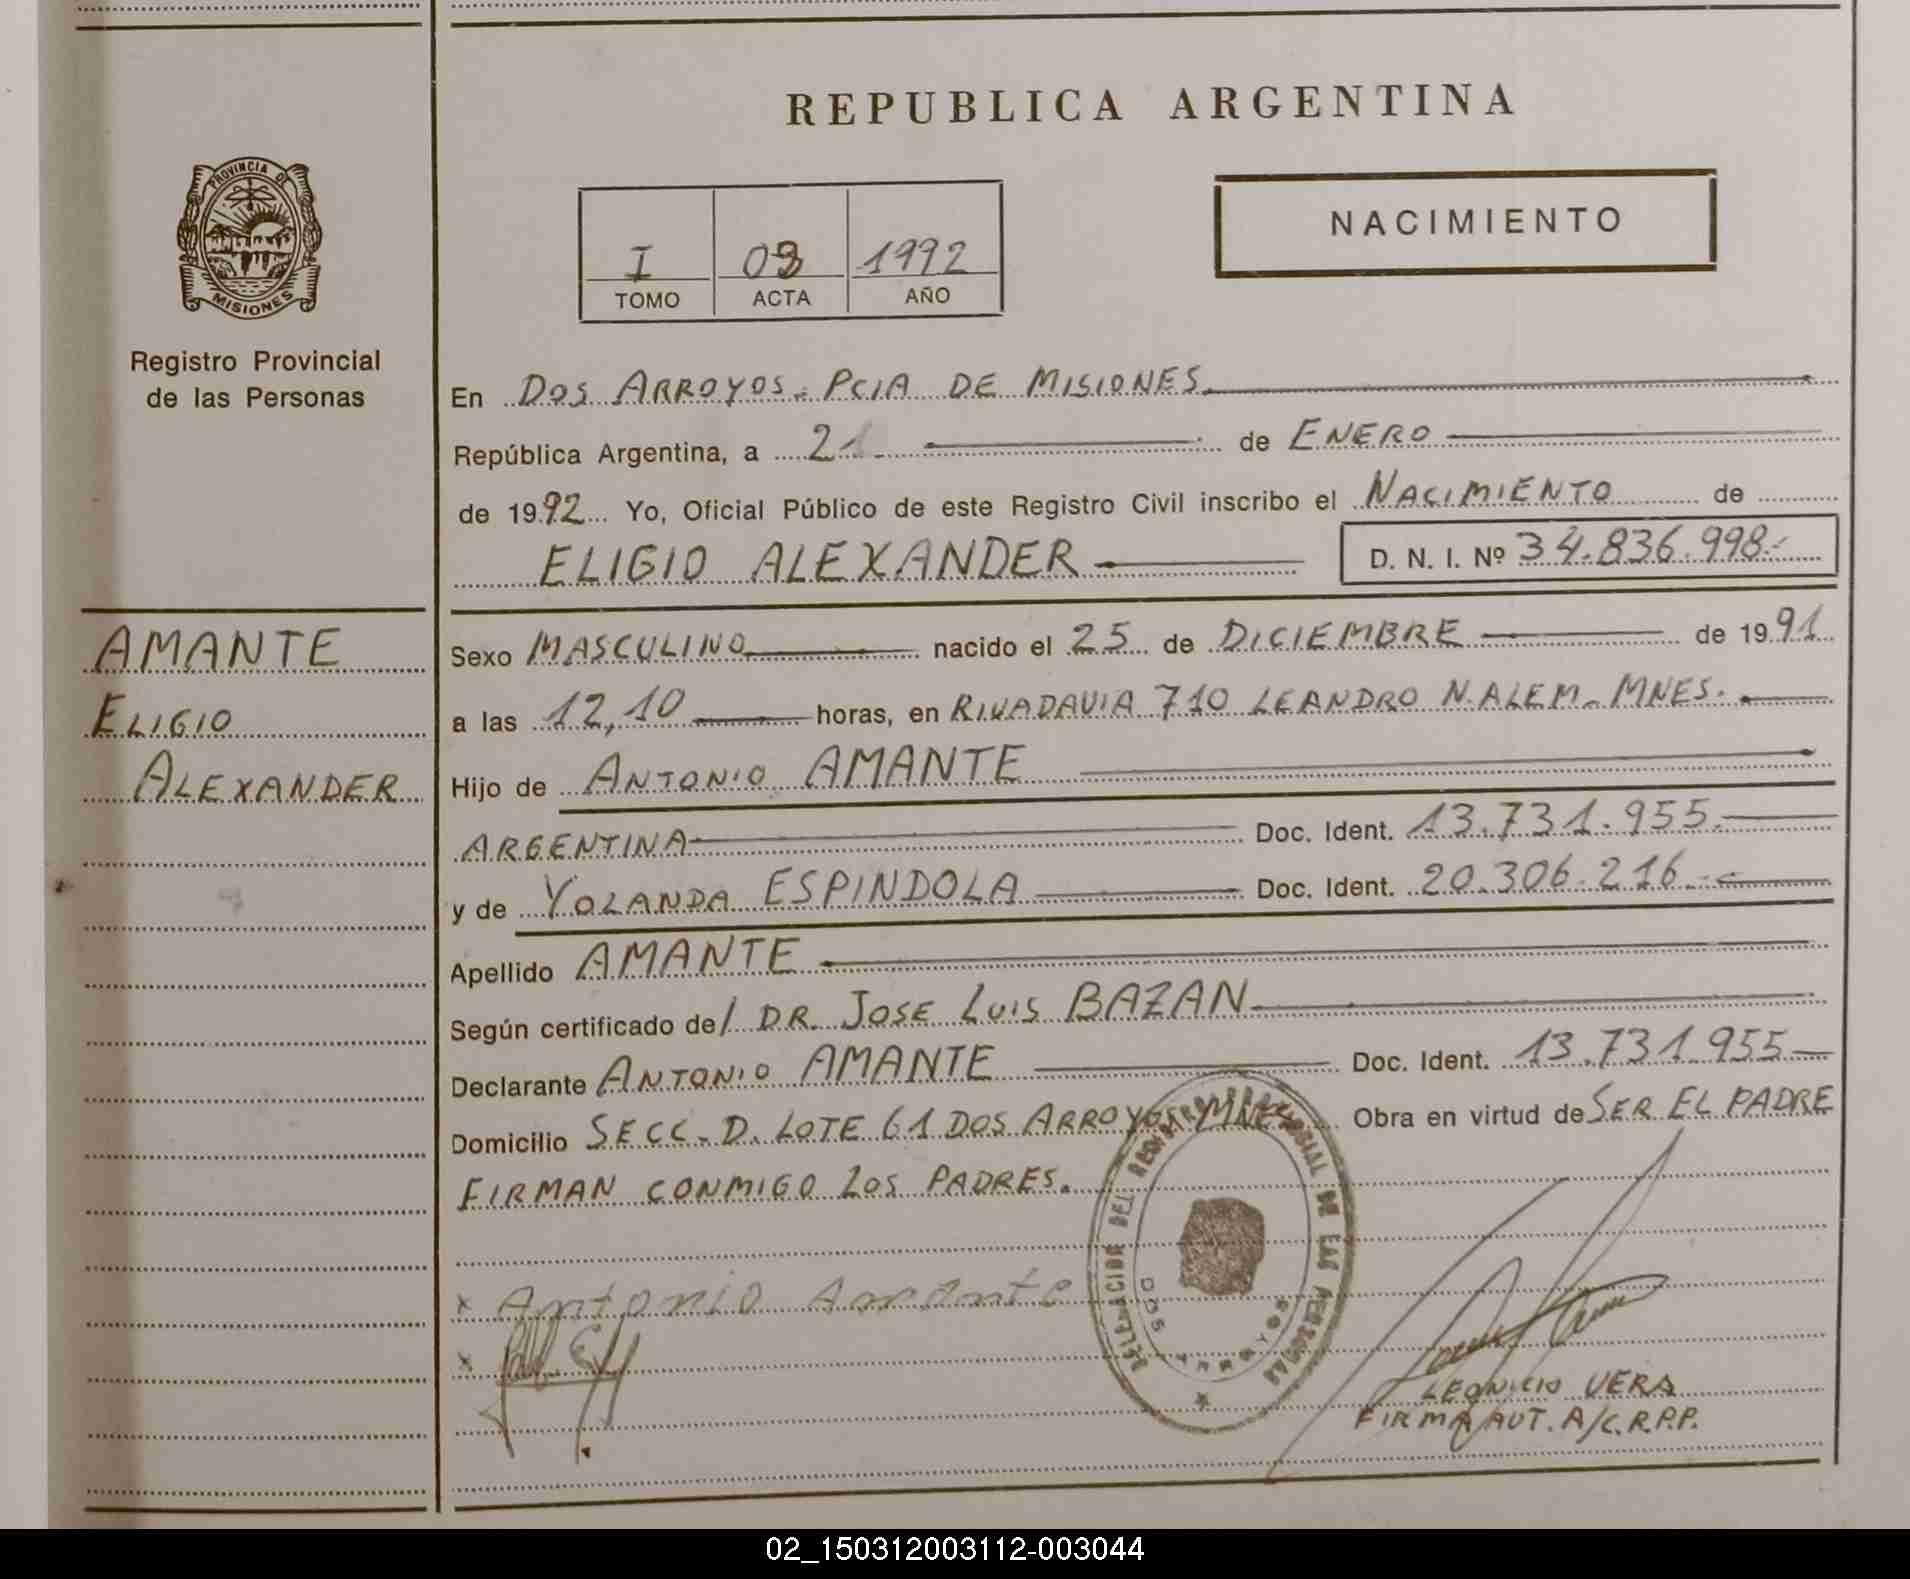 REPUBLICA ARGENTINA
PROVINCIA DE
MISIONES
NACIMIENTO
I 03 1992
TOMO ACTA AÑO
Registro Provincial
de las Personas
En DOS ARROYOS. PCIA DE MISIONES.
República Argentina, a 21 de ENERO
de 1992 Yo, Oficial Público de este Registro Civil inscribo el NACIMIENTO de
ELIGIO ALEXANDER D. N. I. Nº 34.836.998.-
AMANTE
ELIGIO
ALEXANDER
Sexo MASCULINO nacido el 25 de DICIEMBRE de 1991
a las 12,10 horas, en RIVADAVIA 710 LEANDRO N. ALEM. MNES.
Hijo de ANTONIO AMANTE
ARGENTINA Doc. Ident. 13.731.955.
y de YOLANDA ESPINDOLA Doc. Ident. 20.306.216.-
Apellido AMANTE
Según certificado de/ DR. JOSE LUIS BAZAN
Declarante ANTONIO AMANTE Doc. Ident. 13.731.955
Domicilio SECC. D. LOTE 61 DOS ARROYOS MNES. Obra en virtud de SER EL PADRE
FIRMAN CONMIGO LOS PADRES.
x Antonio Amante
x
DELEGACION DEL REGISTRO PROVINCIAL DE LAS PERSONAS
DOS ARROYOS
LEONCIO VERA
FIRMA AUT. A/C. R.P.P.
02_150312003112-003044